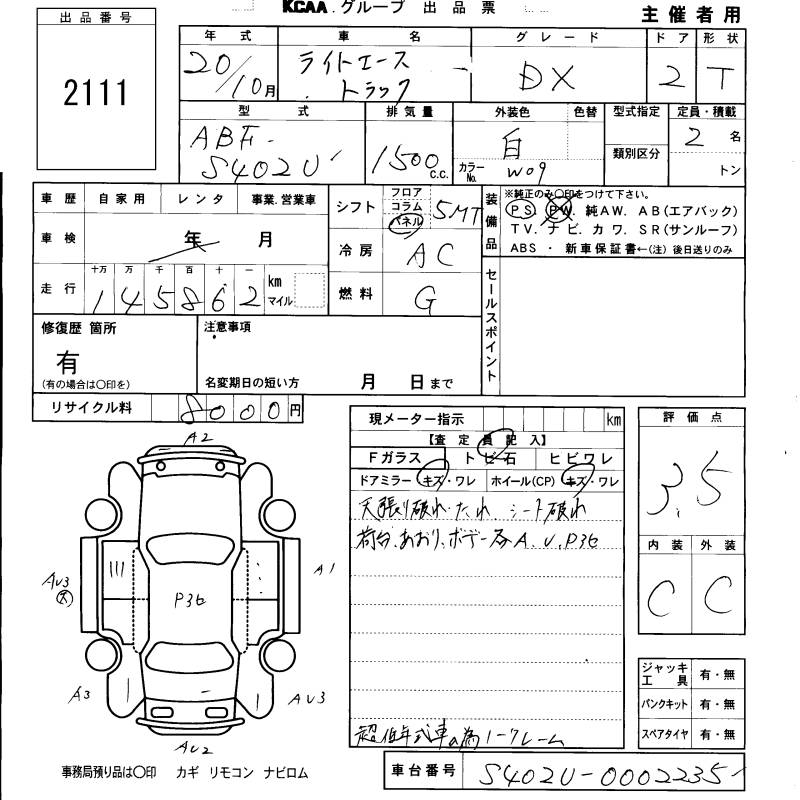 KCAA グループ 出品票
主催者用
出品番号
2111
年式 車名 グレード ドア 形状
20/10月 ライトエース トラック DX 2 T
型式 排気量 外装色 色替 型式指定 定員・積載
ABF-S402U 1500c.c. 白 カラーNo. W09 類別区分 2名
トン
車歴 自家用 レンタ 事業.営業車
車検 年 月
走行 十万 万 千 百 十 一
145862 km
マイル
シフト フロア コラム パネル 5MT
冷房 AC
燃料 G
装備品
※純正のみ○印をつけて下さい。
PS. PW. 純AW. AB(エアバック)
TV. ナビ. カワ. SR(サンルーフ)
ABS ・ 新車保証書←(注)後日送りのみ
セールスポイント
修復歴 箇所
有
(有の場合は○印を)
注意事項
名変期日の短い方 月 日まで
リサイクル料 8000円
現メーター指示 km
【査定員記入】
Fガラス トビ石 ヒビワレ
ドアミラー キズ・ワレ ホイール(CP) キズ・ワレ
天張り破れ・たれ シート破れ
荷台.あおり.ボデー各A.U.P36
超低年式車の為ノークレーム
評価点
3.5
内装 外装
C C
ジャッキ工具 有・無
パンクキット 有・無
スペアタイヤ 有・無
車台番号 S402U-0002235
A2
AU3
大
A1
P36
A3
AU3
AU2
事務局預り品は○印 カギ リモコン ナビロム